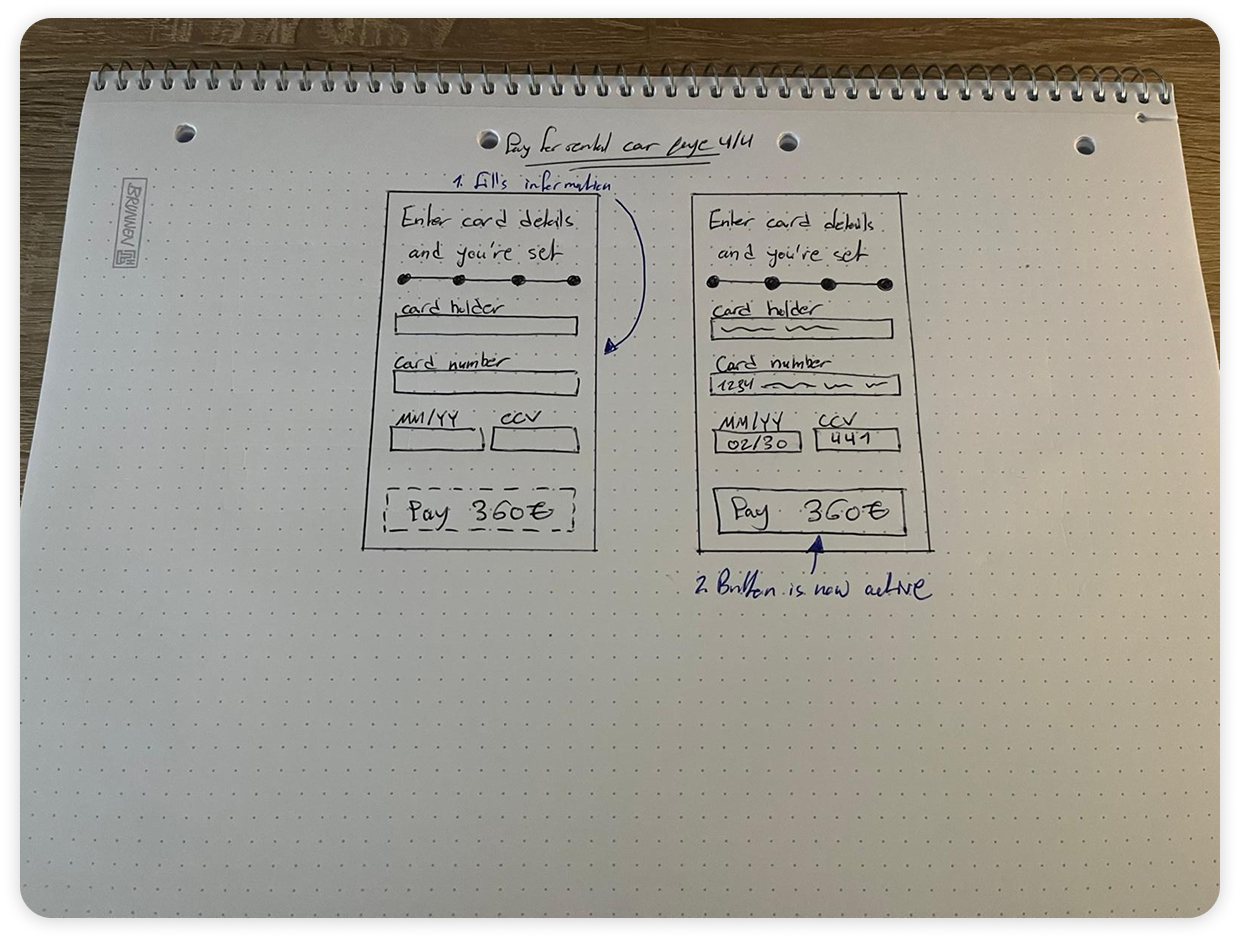 Pay for rental car page 4/4
1. Fills information
BRUNNEN
Enter card details
and you're set
card holder
Card number
MM/YY CCV
Pay 360€
Enter card details
and you're set
card holder
Card number
1234
MM/YY CCV
02/30 441
Pay 360€
2. Button is now active